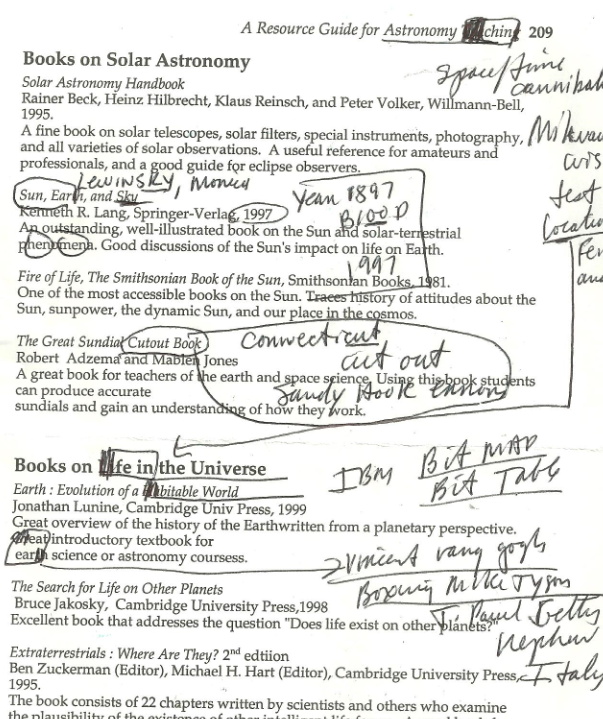 A Resource Guide for Astronomy ching 209
Books on Solar Astronomy
space/time
cannibal
Solar Astronomy Handbook
Rainer Beck, Heinz Hilbrecht, Klaus Reinsch, and Peter Volker, Willmann-Bell,
1995.
A fine book on solar telescopes, solar filters, special instruments, photography,
and all varieties of solar observations. A useful reference for amateurs and
professionals, and a good guide for eclipse observers.
test
Locatio
Lewinsky, Monica
Year 1897
BlOOD
1997
Sun, Earth, and Sky
Kenneth R. Lang, Springer-Verlag, 1997
An outstanding, well-illustrated book on the Sun and solar-terrestrial
phenomena. Good discussions of the Sun's impact on life on Earth.
Fire of Life, The Smithsonian Book of the Sun, Smithsonian Books, 1981.
One of the most accessible books on the Sun. Traces history of attitudes about the
Sun, sunpower, the dynamic Sun, and our place in the cosmos.
The Great Sundial Cutout Book
Connecticut
cut out
Robert Adzema and Mablen Jones
A great book for teachers of the earth and space science. Using this book students
can produce accurate
Sandy Hook
sundials and gain an understanding of how they work.
Books on Life in the Universe
IBM
Bit MAP
Bit Table
Earth : Evolution of a Habitable World
Jonathan Lunine, Cambridge Univ Press, 1999
Great overview of the history of the Earthwritten from a planetary perspective.
Great introductory textbook for
earth science or astronomy coursess.
Vincent vang gogh
Boxing Mike Tyson
J. Paul Getty
Nephew
Italy
The Search for Life on Other Planets
Bruce Jakosky, Cambridge University Press,1998
Excellent book that addresses the question "Does life exist on other planets?"
Extraterrestrials : Where Are They? 2nd edtiion
Ben Zuckerman (Editor), Michael H. Hart (Editor), Cambridge University Press,
1995.
The book consists of 22 chapters written by scientists and others who examine
the plausibility of the existence of other intelligent life